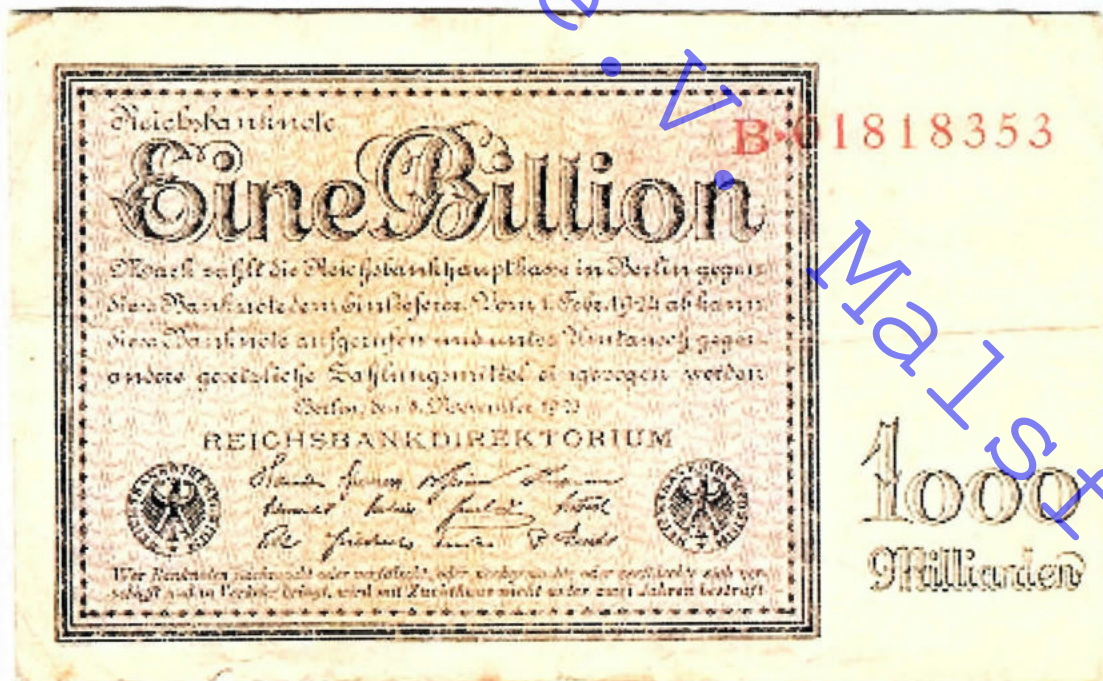 Reichsbanknote
Eine Billion
B·01818353
Mark zahlt die Reichsbankhauptkasse in Berlin gegen
diese Banknote dem Einlieferer. Vom 1. Febr. 1924 ab kann
diese Banknote aufgerufen und unter Umtausch gegen
andere gesetzliche Zahlungsmittel eingezogen werden
Berlin, den 5. November 1923
REICHSBANKDIREKTORIUM
1000
Milliarden
Wer Banknoten nachmacht oder verfälscht, oder nachgemachte oder verfälschte sich ver-
schafft und in Verkehr bringt, wird mit Zuchthaus nicht unter zwei Jahren bestraft
.V. Malst